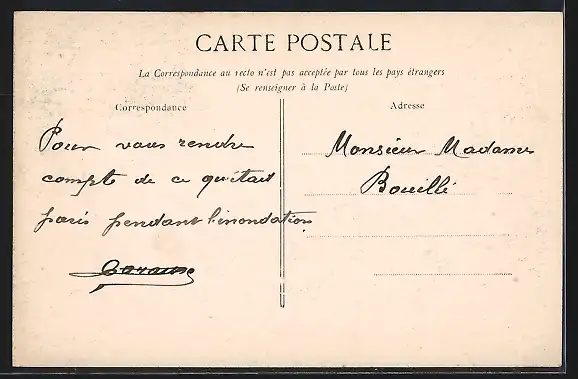 CARTE POSTALE
La Correspondance au recto n'est pas acceptée par tous les pays étrangers
(Se renseigner à la Poste)
Correspondance
Pour vous rendre
compte de ce qu'était
paris pendant l'inondation
Adresse
Monsieur Madame
Bouillé